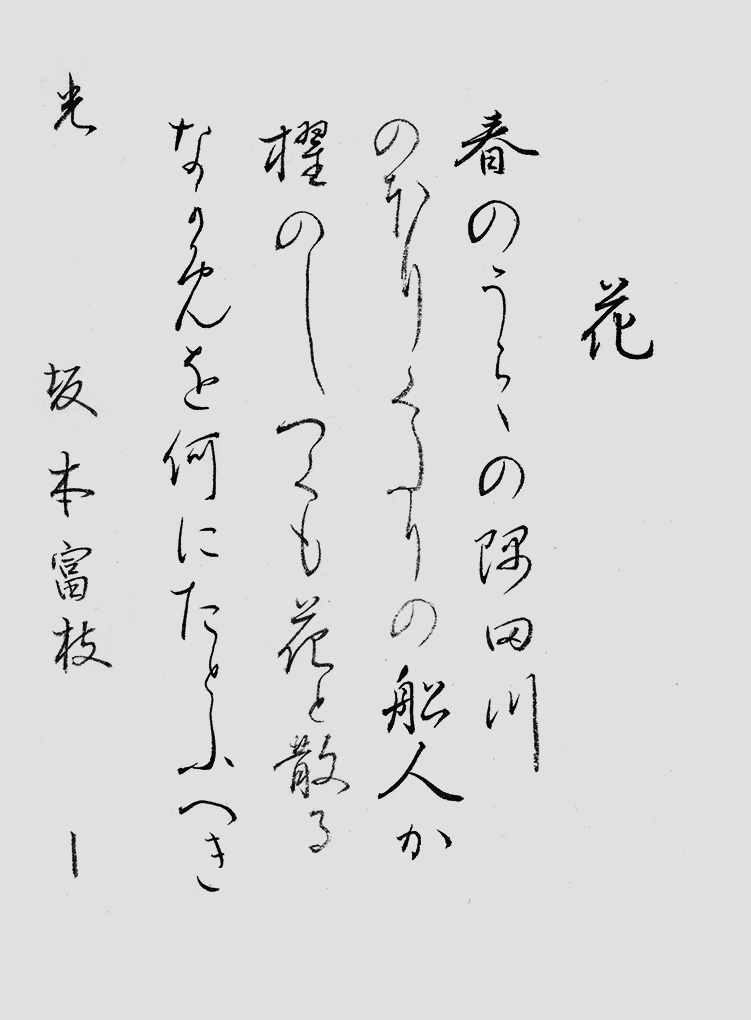 花
春のうらゝの隅田川
のほりくたりの船人か
櫂のしつくも花と散る
なかめを何にたとふへき
光 坂本富枝